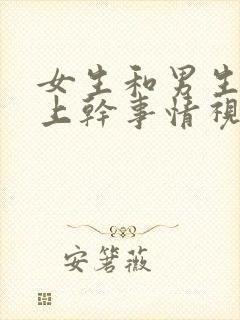 女生和男生
上幹事情視
安箬薇